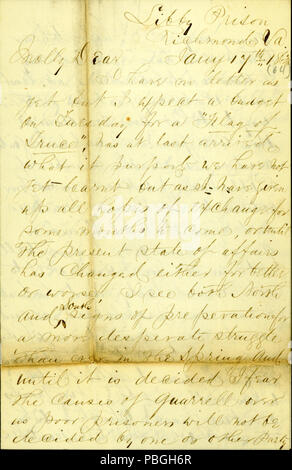 Libby Prison
Richmond Va
Molly Dear Jany 17th 18
(64)
I have no letter as
yet but I expect a
on Tuesday for a "Flag of
Truce" has at last arrived
what it purports we have not
yet learnt but as I have given
up all notion of Exchange for
some months to come, or until
the present state of affairs
has changed either for better
or worse, I see both North
and South signs of preperation for
a more desperate struggle
than ever in the Spring and
until it is decided I fear
the causes of Quarrell over
us poor prisoners will not be
decided by one or other party
alamy
alamy stock photo
PBGH6R